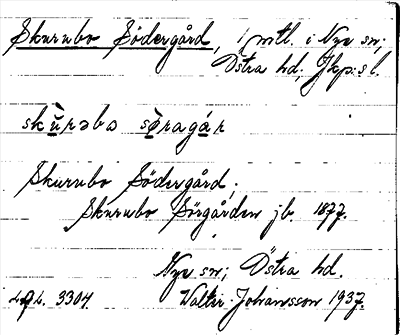 Skurubo Södergård, 1 mtl. i Nye sn;
Östra hd, Jkp:s l.
skùrəbo sø̀ragár
Skurubo Södergård;
Skurubo Sörgården jb 1877.
Nye sn; Östra hd.
3304. Walter Johansson 1937.